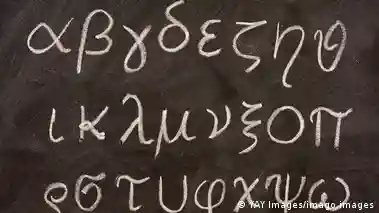 αβγδεζηθ
ικλμνξοπ
ρστυφχψω
© YAY Images/imago images